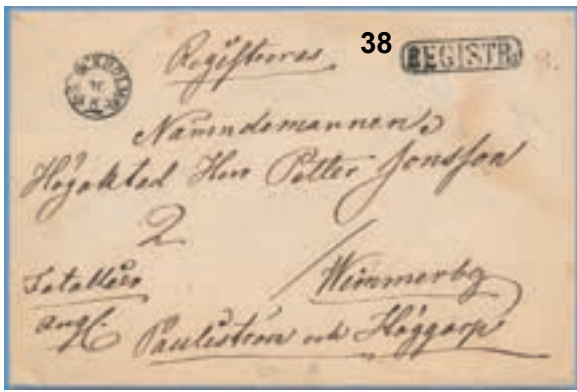 38
Registreras
REGISTR.
Nämndemannen
Högaktad Herr Petter Jonsson
2
Wimmerby
Paulistrom och Höggarp